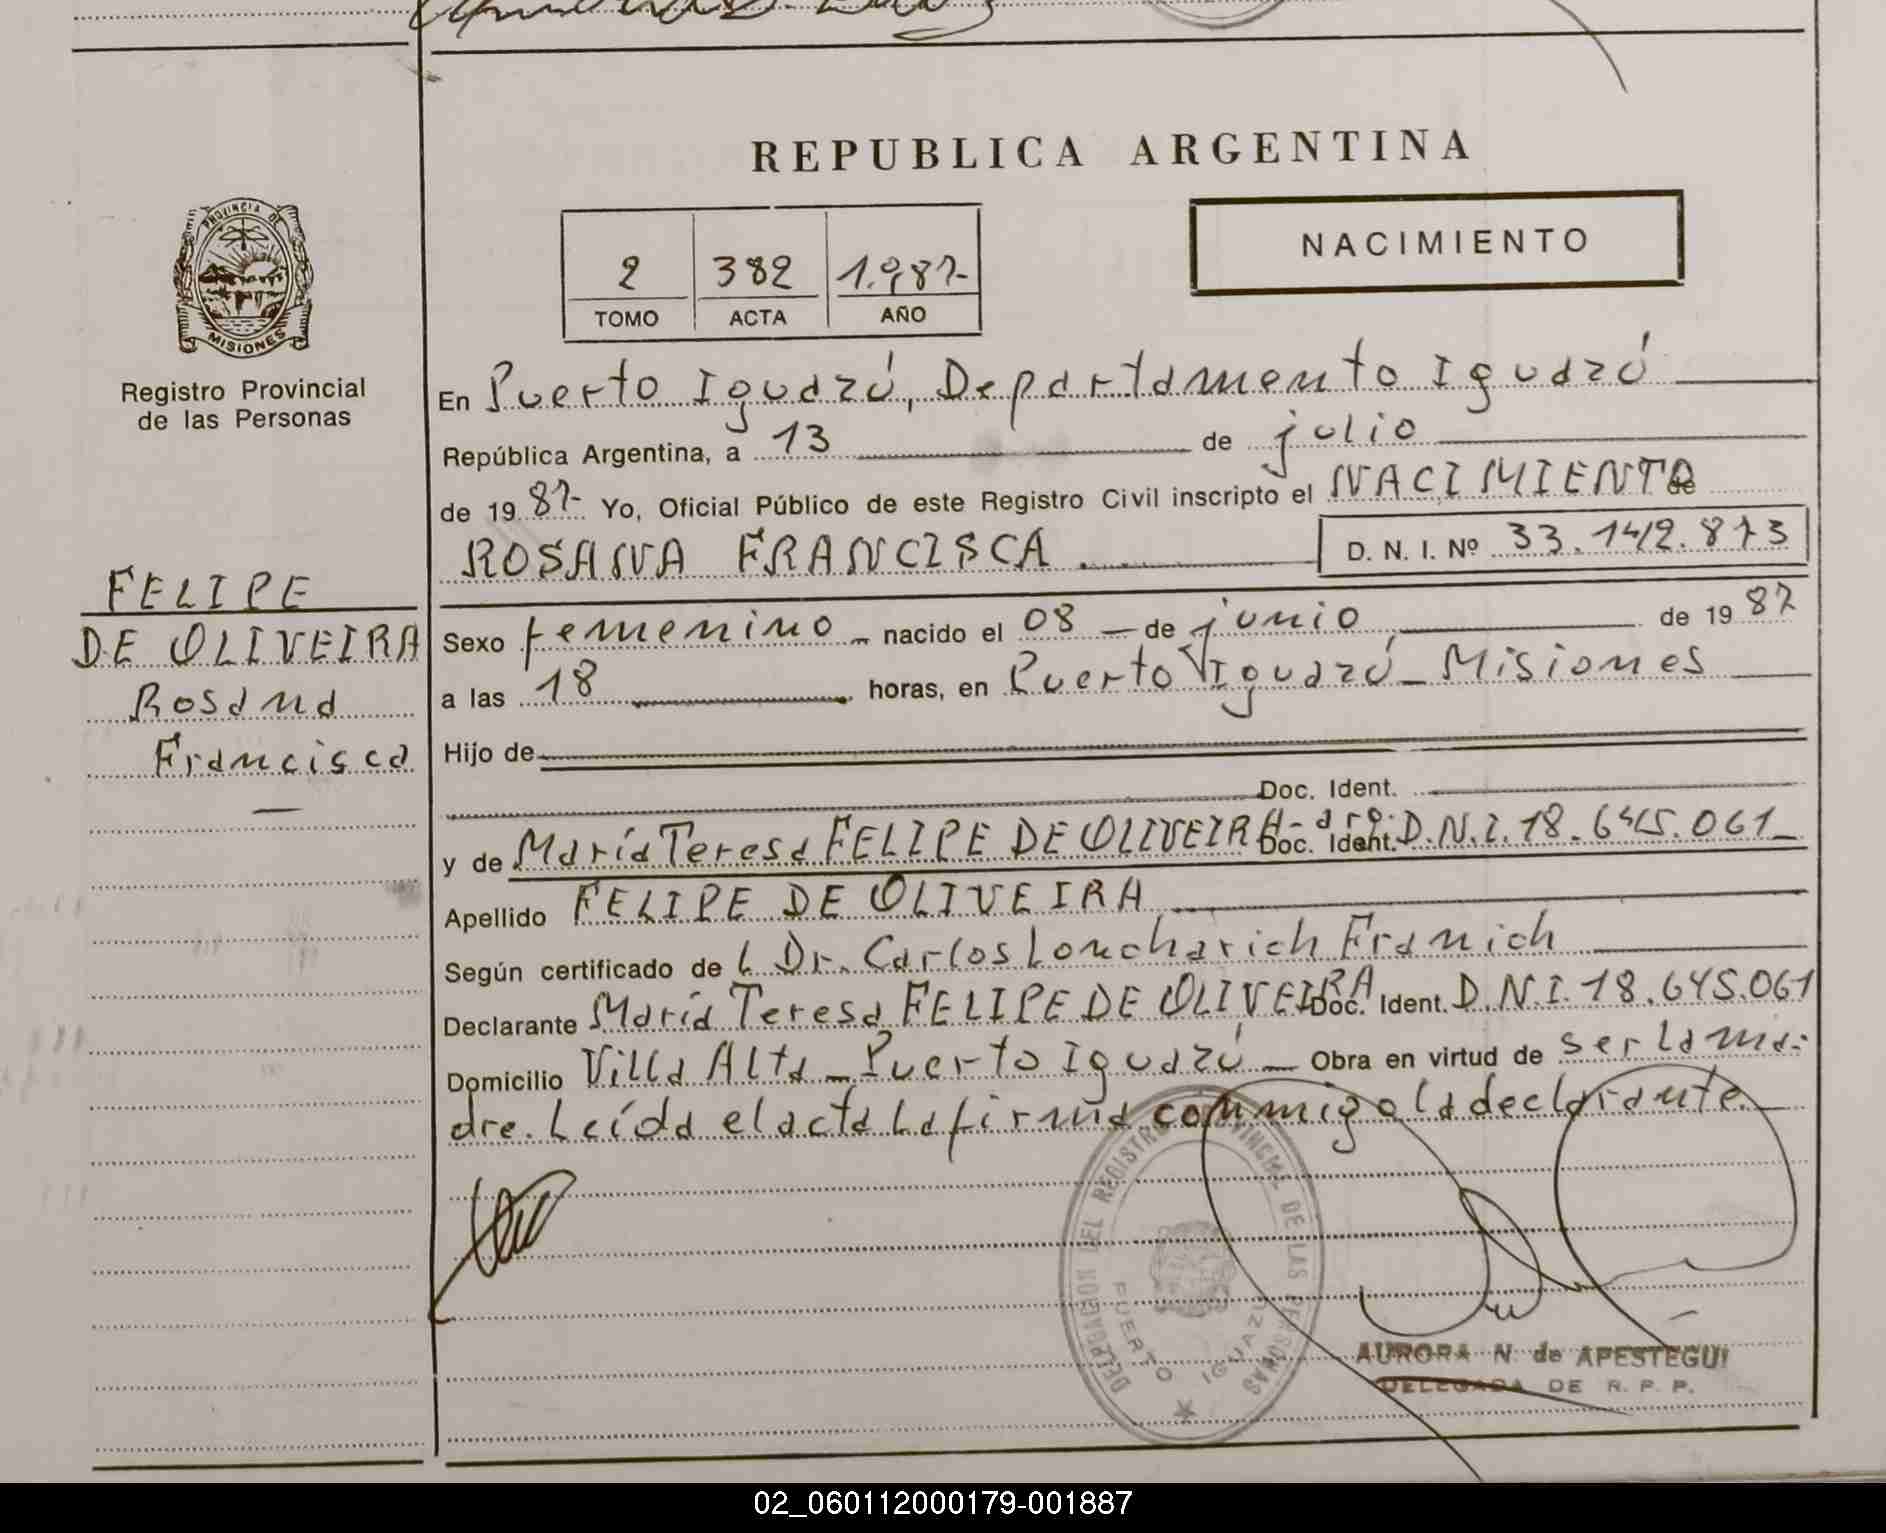 REPUBLICA ARGENTINA
NACIMIENTO
2 382 1.987-
TOMO ACTA AÑO
PROVINCIA DE
MISIONES
Registro Provincial
de las Personas
FELIPE
DE OLIVEIRA
Rosana
Francisca
En Puerto Iguazú, Departamento Iguazú
República Argentina, a 13 de julio
de 19 87- Yo, Oficial Público de este Registro Civil inscripto el NACIMIENTO de
ROSANA FRANCISCA D. N. I. Nº 33.142.873
Sexo femenino nacido el 08 de junio de 19 87
a las 18 horas, en Puerto Iguazú - Misiones
Hijo de
Doc. Ident.
y de María Teresa FELIPE DE OLIVEIRA - arg. Doc. Ident. D.N.I. 18.645.061
Apellido FELIPE DE OLIVEIRA
Según certificado de l Dr. Carlos Loncharich Franich
Declarante María Teresa FELIPE DE OLIVEIRA Doc. Ident. D.N.I. 18.645.061
Domicilio Villa Alta - Puerto Iguazú - Obra en virtud de ser la ma-
dre. Leída el acta la firma conmigo la declarante.
DELEGACION DEL REGISTRO PROVINCIAL DE LAS PERSONAS
PUERTO IGUAZU
AURORA N. de APESTEGUI
DELEGADA DE R. P. P.
02_060112000179-001887